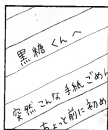 黒糖くんへ
突然こんな手紙ごめん
ちょっと前に初め